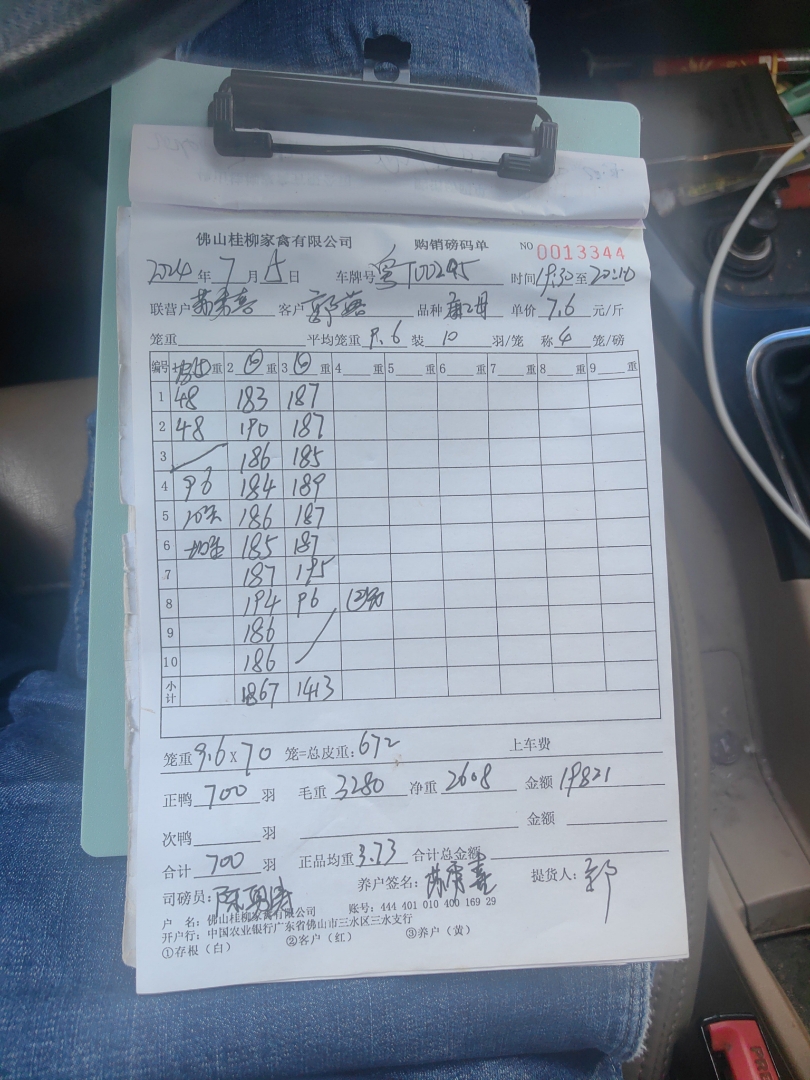 佛山桂柳家禽有限公司 购销磅码单 NO 0013344
2024 年 7 月 15 日 车牌号 粤T00245 时间 19:30 至 22:10
联营户 客户 郭 品种 单价 7.6 元/斤
笼重 平均笼重 9.6 装 10 羽/笼 称 4 笼/磅
编号 重 2 重 3 重 4 重 5 重 6 重 7 重 8 重 9 重
1 48 183 187
2 48 190 187
3 186 185
4 96 184 189
5 186 187
6 185 187
7 187 195
8 194 96
9 186
10 186
小计 1867 1413
笼重 9.6 x 70 笼=总皮重: 672 上车费
正鸭 700 羽 毛重 3280 净重 2608 金额 19821
次鸭 羽 金额
合计 700 羽 正品均重 3.73 合计总金额
司磅员: 养户签名: 提货人: 郭
户 名: 佛山桂柳家禽有限公司 账号: 444 401 010 400 169 29
开户行: 中国农业银行广东省佛山市三水区三水支行
①存根（白） ②客户（红） ③养户（黄）